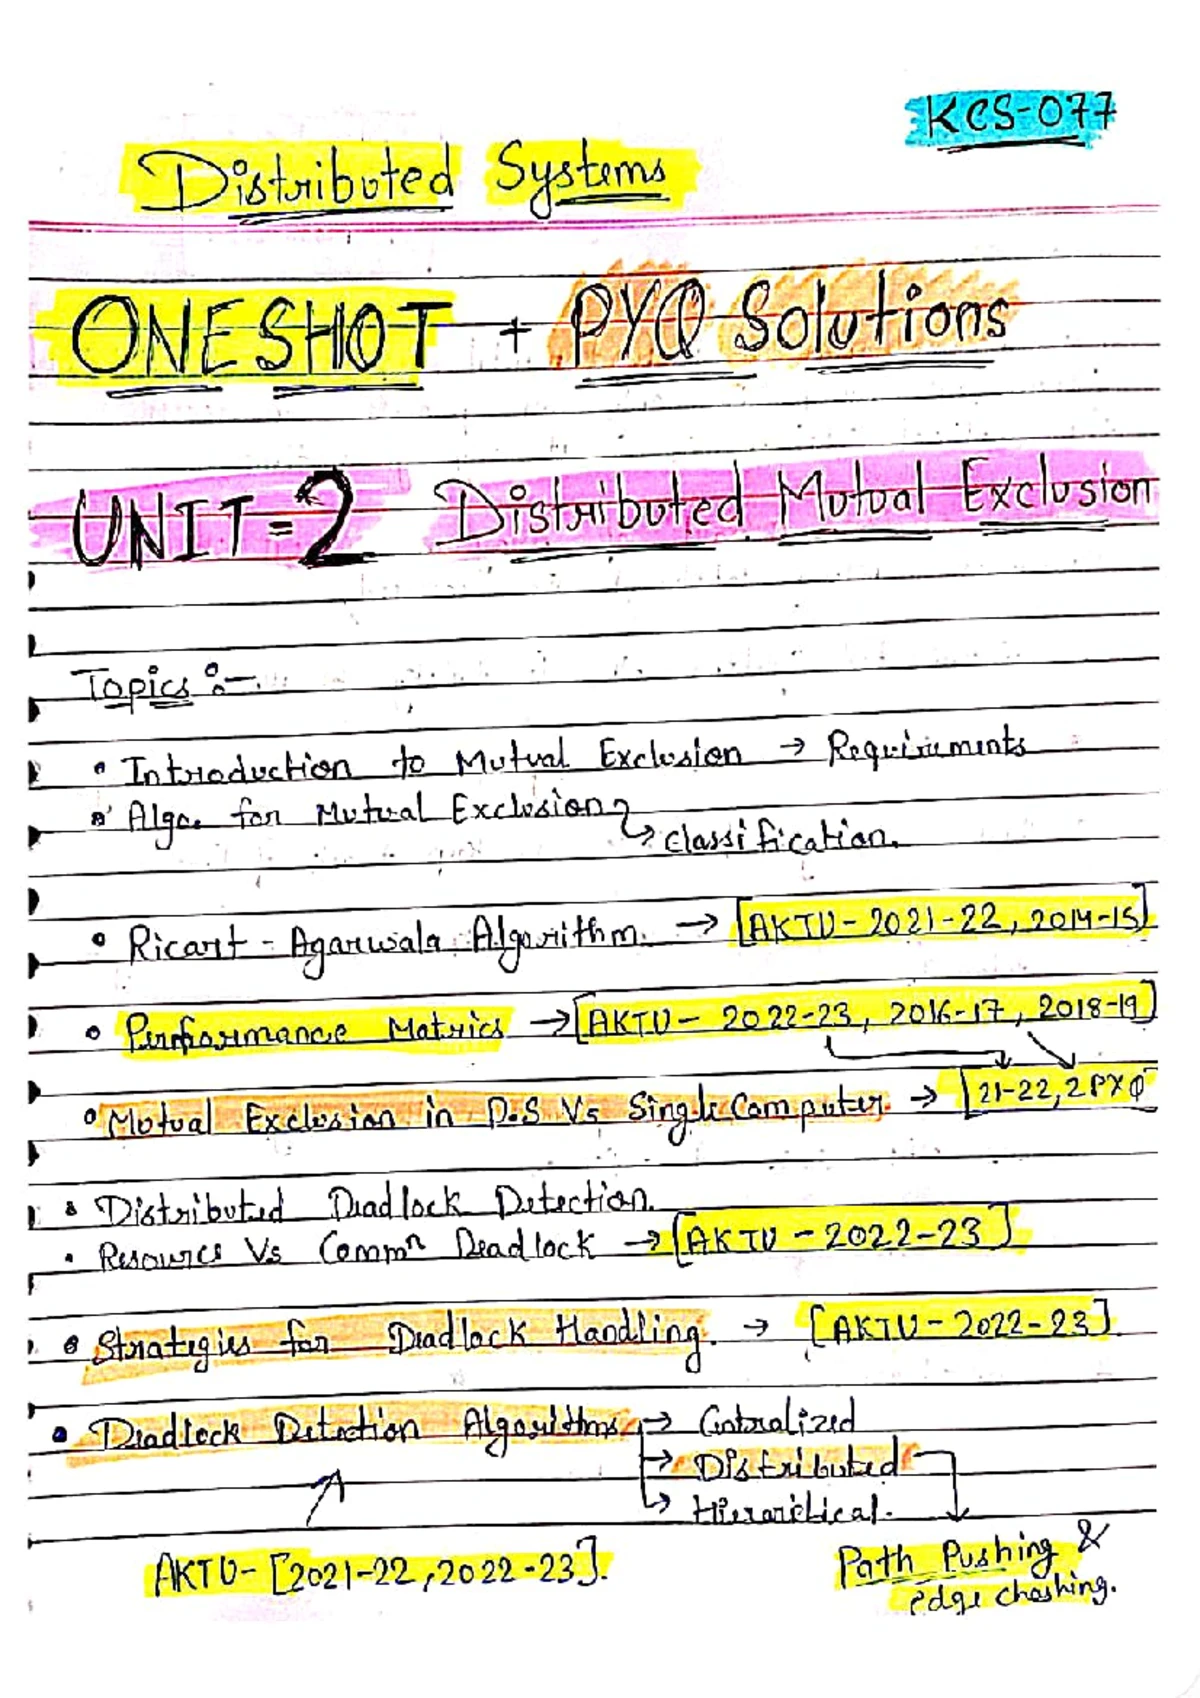 KCS-077
Distributed Systems
ONESHOT + PYQ Solutions
UNIT-2 Distributed Mutual Exclusion
Topics :-
• Introduction to Mutual Exclusion → Requirements
• Algo. for Mutual Exclusion
↳ classification.
• Ricart - Agarwala Algorithm. → [AKTU - 2021-22, 2014-15]
• Performance Matrics → [AKTU - 2022-23, 2016-17, 2018-19]
• Mutual Exclusion in D.S Vs Single Computer → [21-22, 2PYQ
• Distributed Deadlock Detection.
• Resource Vs Commⁿ Deadlock → [AKTU - 2022-23]
• Strategies for Deadlock Handling. → [AKTU - 2022-23].
• Deadlock Detection Algorithms → Centralized
→ Distributed
↳ Hierarchical.
AKTU- [2021-22, 2022-23].
Path Pushing &
edge chashing.